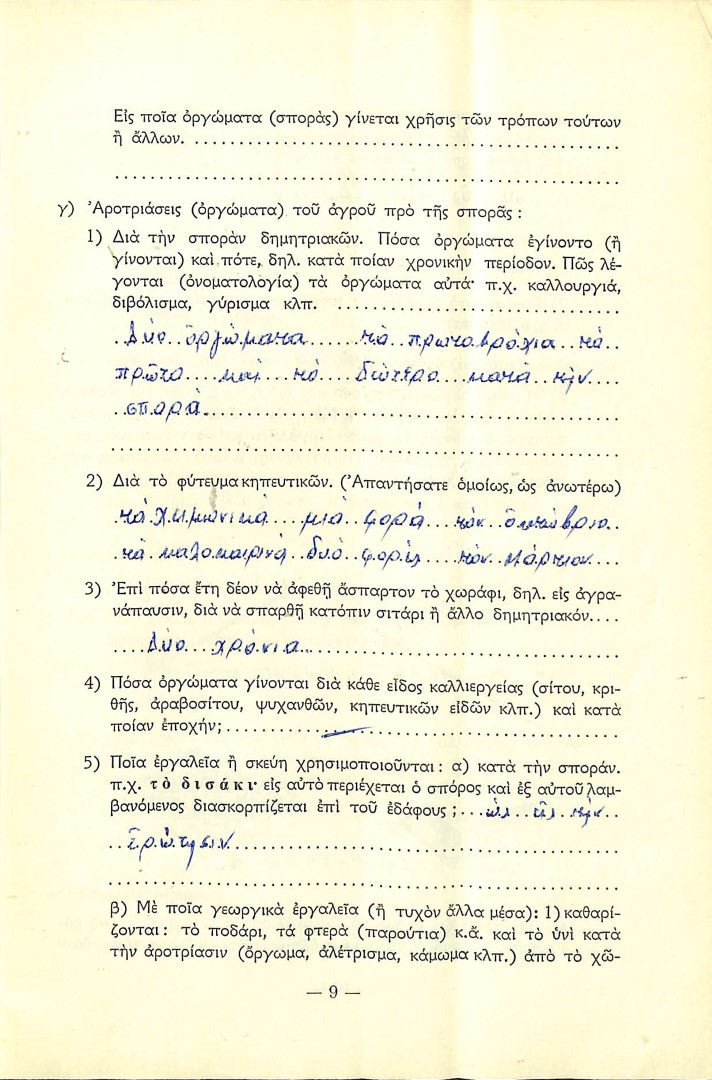 Εἰς ποῖα ὀργώματα (σπορὰς) γίνεται χρῆσις τῶν τρόπων τούτων
ἢ ἄλλων. ........................................
........................................
γ) Ἀροτριάσεις (ὀργώματα) τοῦ ἀγροῦ πρὸ τῆς σπορᾶς :
1) Διὰ τὴν σπορὰν δημητριακῶν. Πόσα ὀργώματα ἐγίνοντο (ἢ
γίνονται) καὶ πότε, δηλ. κατὰ ποίαν χρονικὴν περίοδον. Πῶς λέ-
γονται (ὀνοματολογία) τὰ ὀργώματα αὐτά· π.χ. καλλουργιά,
διβόλισμα, γύρισμα κλπ. ........................
Δύο ὀργώματα τὰ πρωτοβρόχια τὸ
πρῶτο καὶ τὸ δεύτερο κατὰ τὴν
σπορά
........................................
2) Διὰ τὸ φύτευμα κηπευτικῶν. (Ἀπαντήσατε ὁμοίως, ὡς ἀνωτέρω)
τὰ χειμωνικὰ μιὰ φορά τὸν ὀκτώβριο
τὰ καλοκαιρινὰ δυὸ φορὲς τὸν Μάρτιον
3) Ἐπὶ πόσα ἔτη δέον νὰ ἀφεθῇ ἄσπαρτον τὸ χωράφι, δηλ. εἰς ἀγρα-
νάπαυσιν, διὰ νὰ σπαρθῇ κατόπιν σιτάρι ἢ ἄλλο δημητριακόν....
Δύο χρόνια
4) Πόσα ὀργώματα γίνονται διὰ κάθε εἶδος καλλιεργείας (σίτου, κρι-
θῆς, ἀραβοσίτου, ψυχανθῶν, κηπευτικῶν εἰδῶν κλπ.) καὶ κατὰ
ποίαν ἐποχήν; ........................................
5) Ποῖα ἐργαλεῖα ἢ σκεύη χρησιμοποιοῦνται : α) κατὰ τὴν σποράν.
π.χ. τὸ δισάκι· εἰς αὐτὸ περιέχεται ὁ σπόρος καὶ ἐξ αὐτοῦ λαμ-
βανόμενος διασκορπίζεται ἐπὶ τοῦ ἐδάφους ; ... ὡς εἰς τὴν
ἐρώτησιν
........................................
β) Μὲ ποῖα γεωργικὰ ἐργαλεῖα (ἢ τυχὸν ἄλλα μέσα): 1) καθαρί-
ζονται : τὸ ποδάρι, τά φτερὰ (παρούτια) κ.ἄ. καὶ τὸ ὑνὶ κατὰ
τὴν ἀροτρίασιν (ὄργωμα, ἀλέτρισμα, κάμωμα κλπ.) ἀπὸ τὸ χῶ-
— 9 —